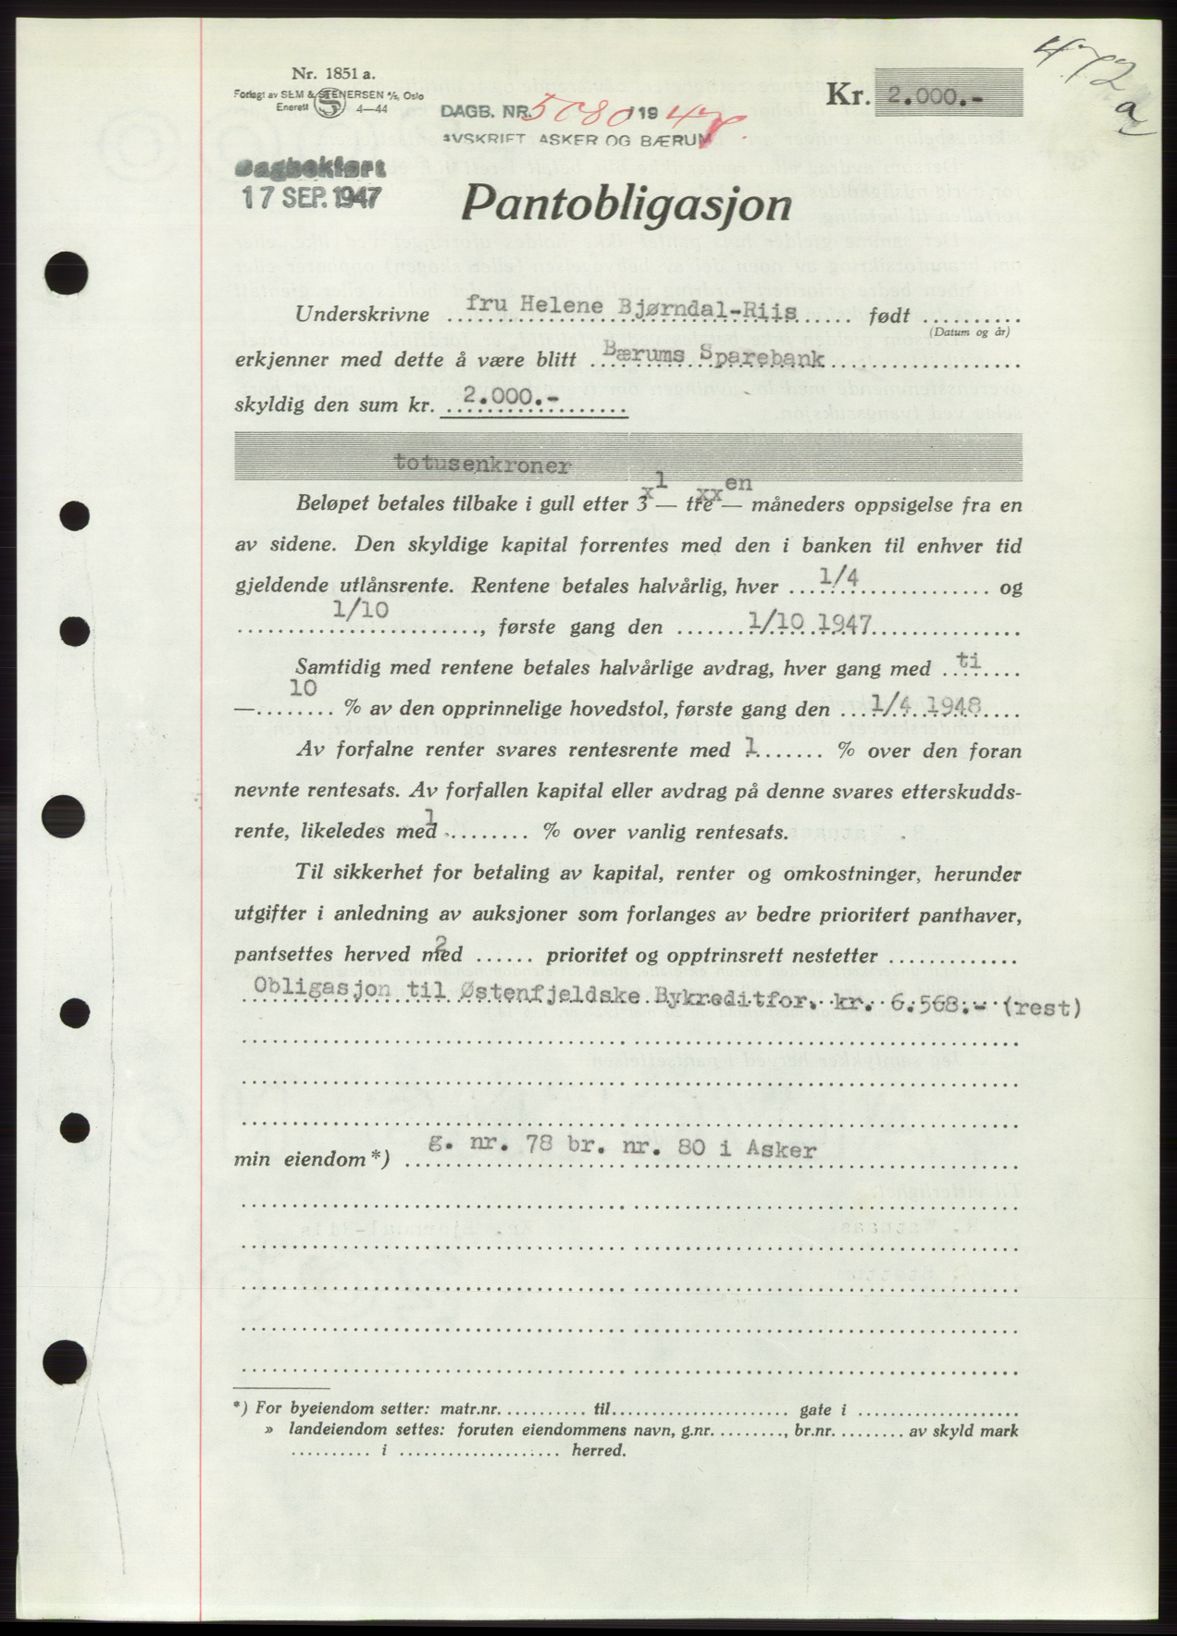 472
a
Nr. 1851 a.
Forlagt av SEM & STENERSEN A/S, Oslo
Enerett S 4—44
DAGB. NR. 5080 1947.
AVSKRIFT ASKER OG BÆRUM
Kr. 2.000.-
Dagbokført
17 SEP. 1947
Pantobligasjon
Underskrivne fru Helene Bjørndal-Riis født ..........
(Datum og år)
erkjenner med dette å være blitt Bærums Sparebank
skyldig den sum kr. 2.000.-
totusenkroner
1 en
Beløpet betales tilbake i gull etter 3 — tre — måneders oppsigelse fra en
av sidene. Den skyldige kapital forrentes med den i banken til enhver tid
gjeldende utlånsrente. Rentene betales halvårlig, hver 1/4 og
1/10, første gang den 1/10 1947
Samtidig med rentene betales halvårlige avdrag, hver gang med ti
— 10 % av den opprinnelige hovedstol, første gang den 1/4 1948
Av forfalne renter svares rentesrente med 1 % over den foran
nevnte rentesats. Av forfallen kapital eller avdrag på denne svares etterskudds-
rente, likeledes med 1 % over vanlig rentesats.
Til sikkerhet for betaling av kapital, renter og omkostninger, herunder
utgifter i anledning av auksjoner som forlanges av bedre prioritert panthaver,
pantsettes herved med 2 prioritet og opptrinsrett nestetter
Obligasjon til Østenfjeldske Bykreditfor. kr. 6.568.- (rest)
min eiendom*) g. nr. 78 br. nr. 80 i Asker
*) For byeiendom setter: matr.nr. .......... til ..................... gate i ...................
» landeiendom settes: foruten eiendommens navn, g.nr. ........., br.nr. ......... av skyld mark
.......... i .................... herred.